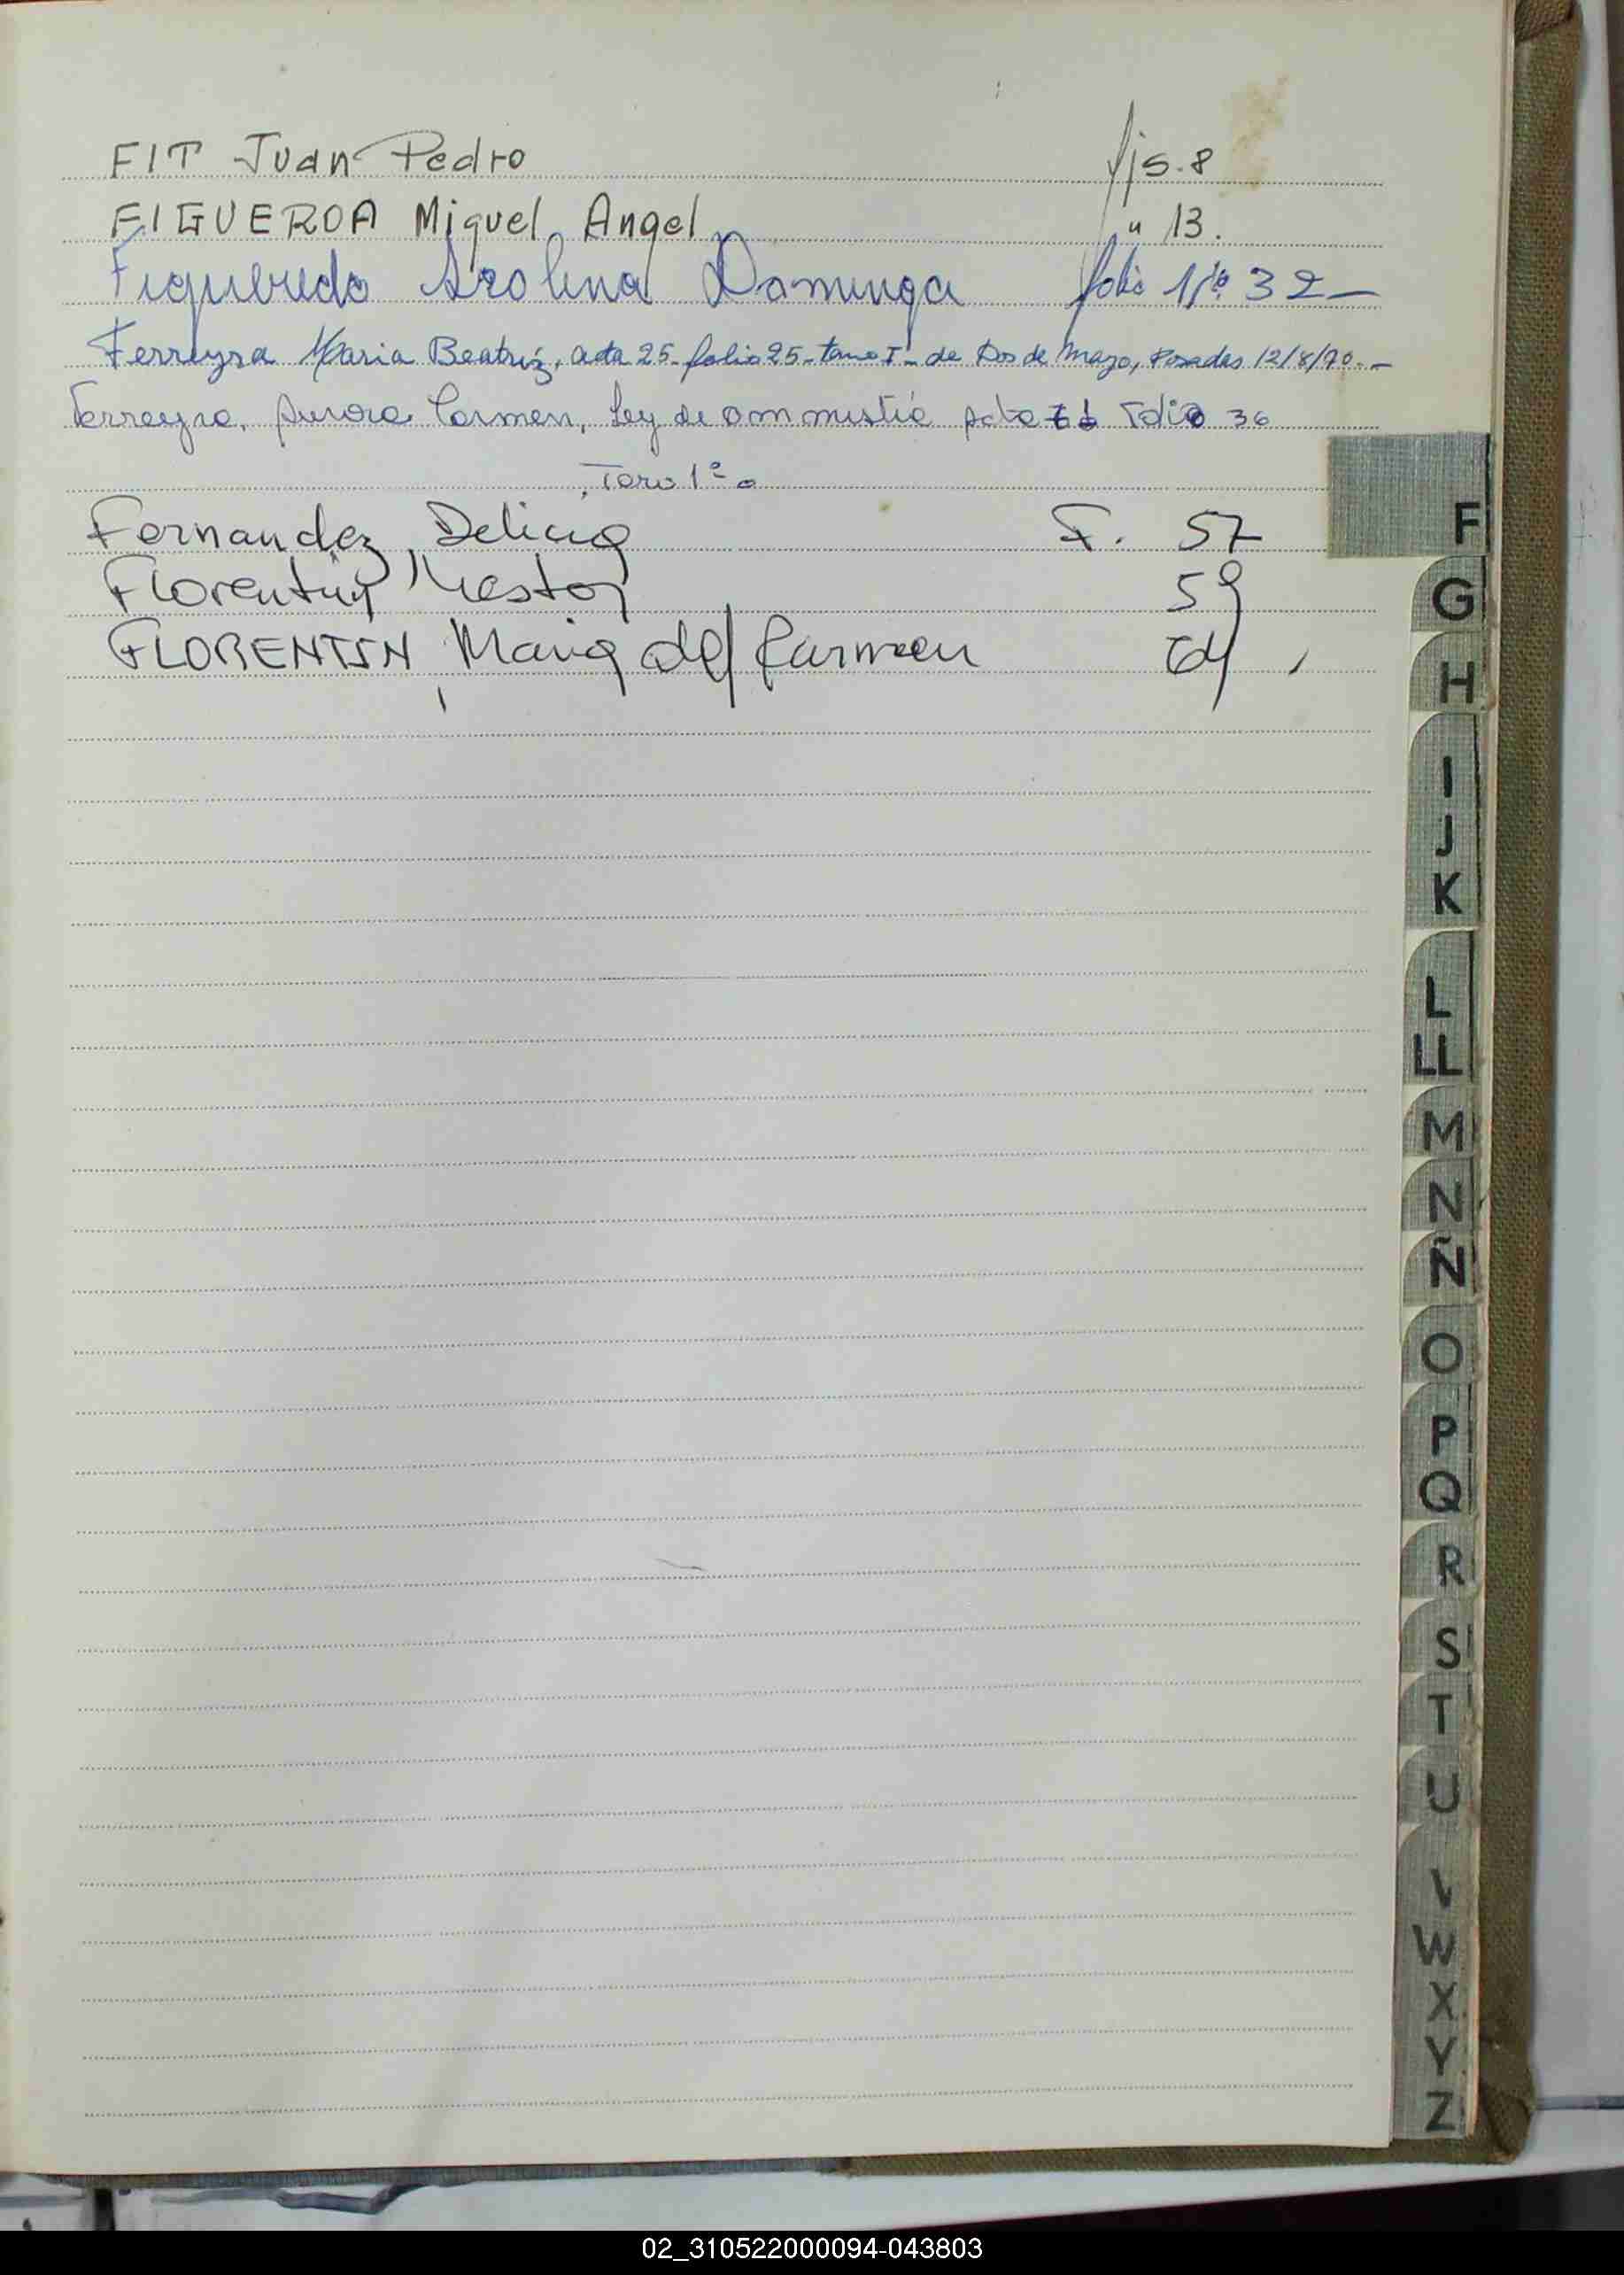 FIT Juan Pedro fjs. 8
FIGUEROA Miguel Angel " 13.
Figueredo Azolina Dominga folio Nº 32-
Ferreyra Maria Beatriz, acta 25- folio 25- tomo I- de Dos de Mayo, Posadas 12/8/70.-
Ferreyra, Aurora Carmen, Ley de ammistia Acta Folio 36
Tomo 1º
Fernandez, Delicia F. 57
Florentin, Nestor 59
FLORENTIN, Maria del Carmen 64
F
G
H
I
J
K
L
LL
M
N
Ñ
O
P
Q
R
S
T
U
V
W
X
Y
Z
02_310522000094-043803